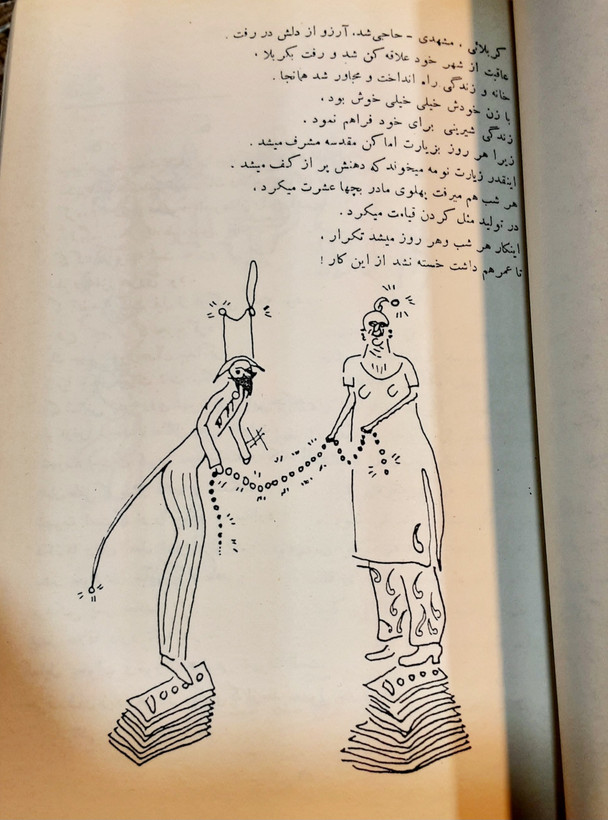 کربلائی ، مشهدی - حاجی‌شد. آرزو از دلش در رفت .
عاقبت از شهر خود علاقه کن شد و رفت بکربلا .
خانه و زندگی راه انداخت و مجاور شد همانجا .
با زن خودش خیلی خیلی خوش بود .
زندگی شیرینی برای خود فراهم نمود .
زیرا هر روز بزیارت اماکن مقدسه مشرف میشد .
اینقدر زیارت نومه میخوند که دهنش پر از کف میشد .
هر شب هم میرفت پهلوی مادر بچها عشرت میکرد .
در تولید مثل کردن قیامت میکرد .
اینکار هر شب وهر روز میشد تکرار .
تا عمر هم داشت خسته نشد از این کار !